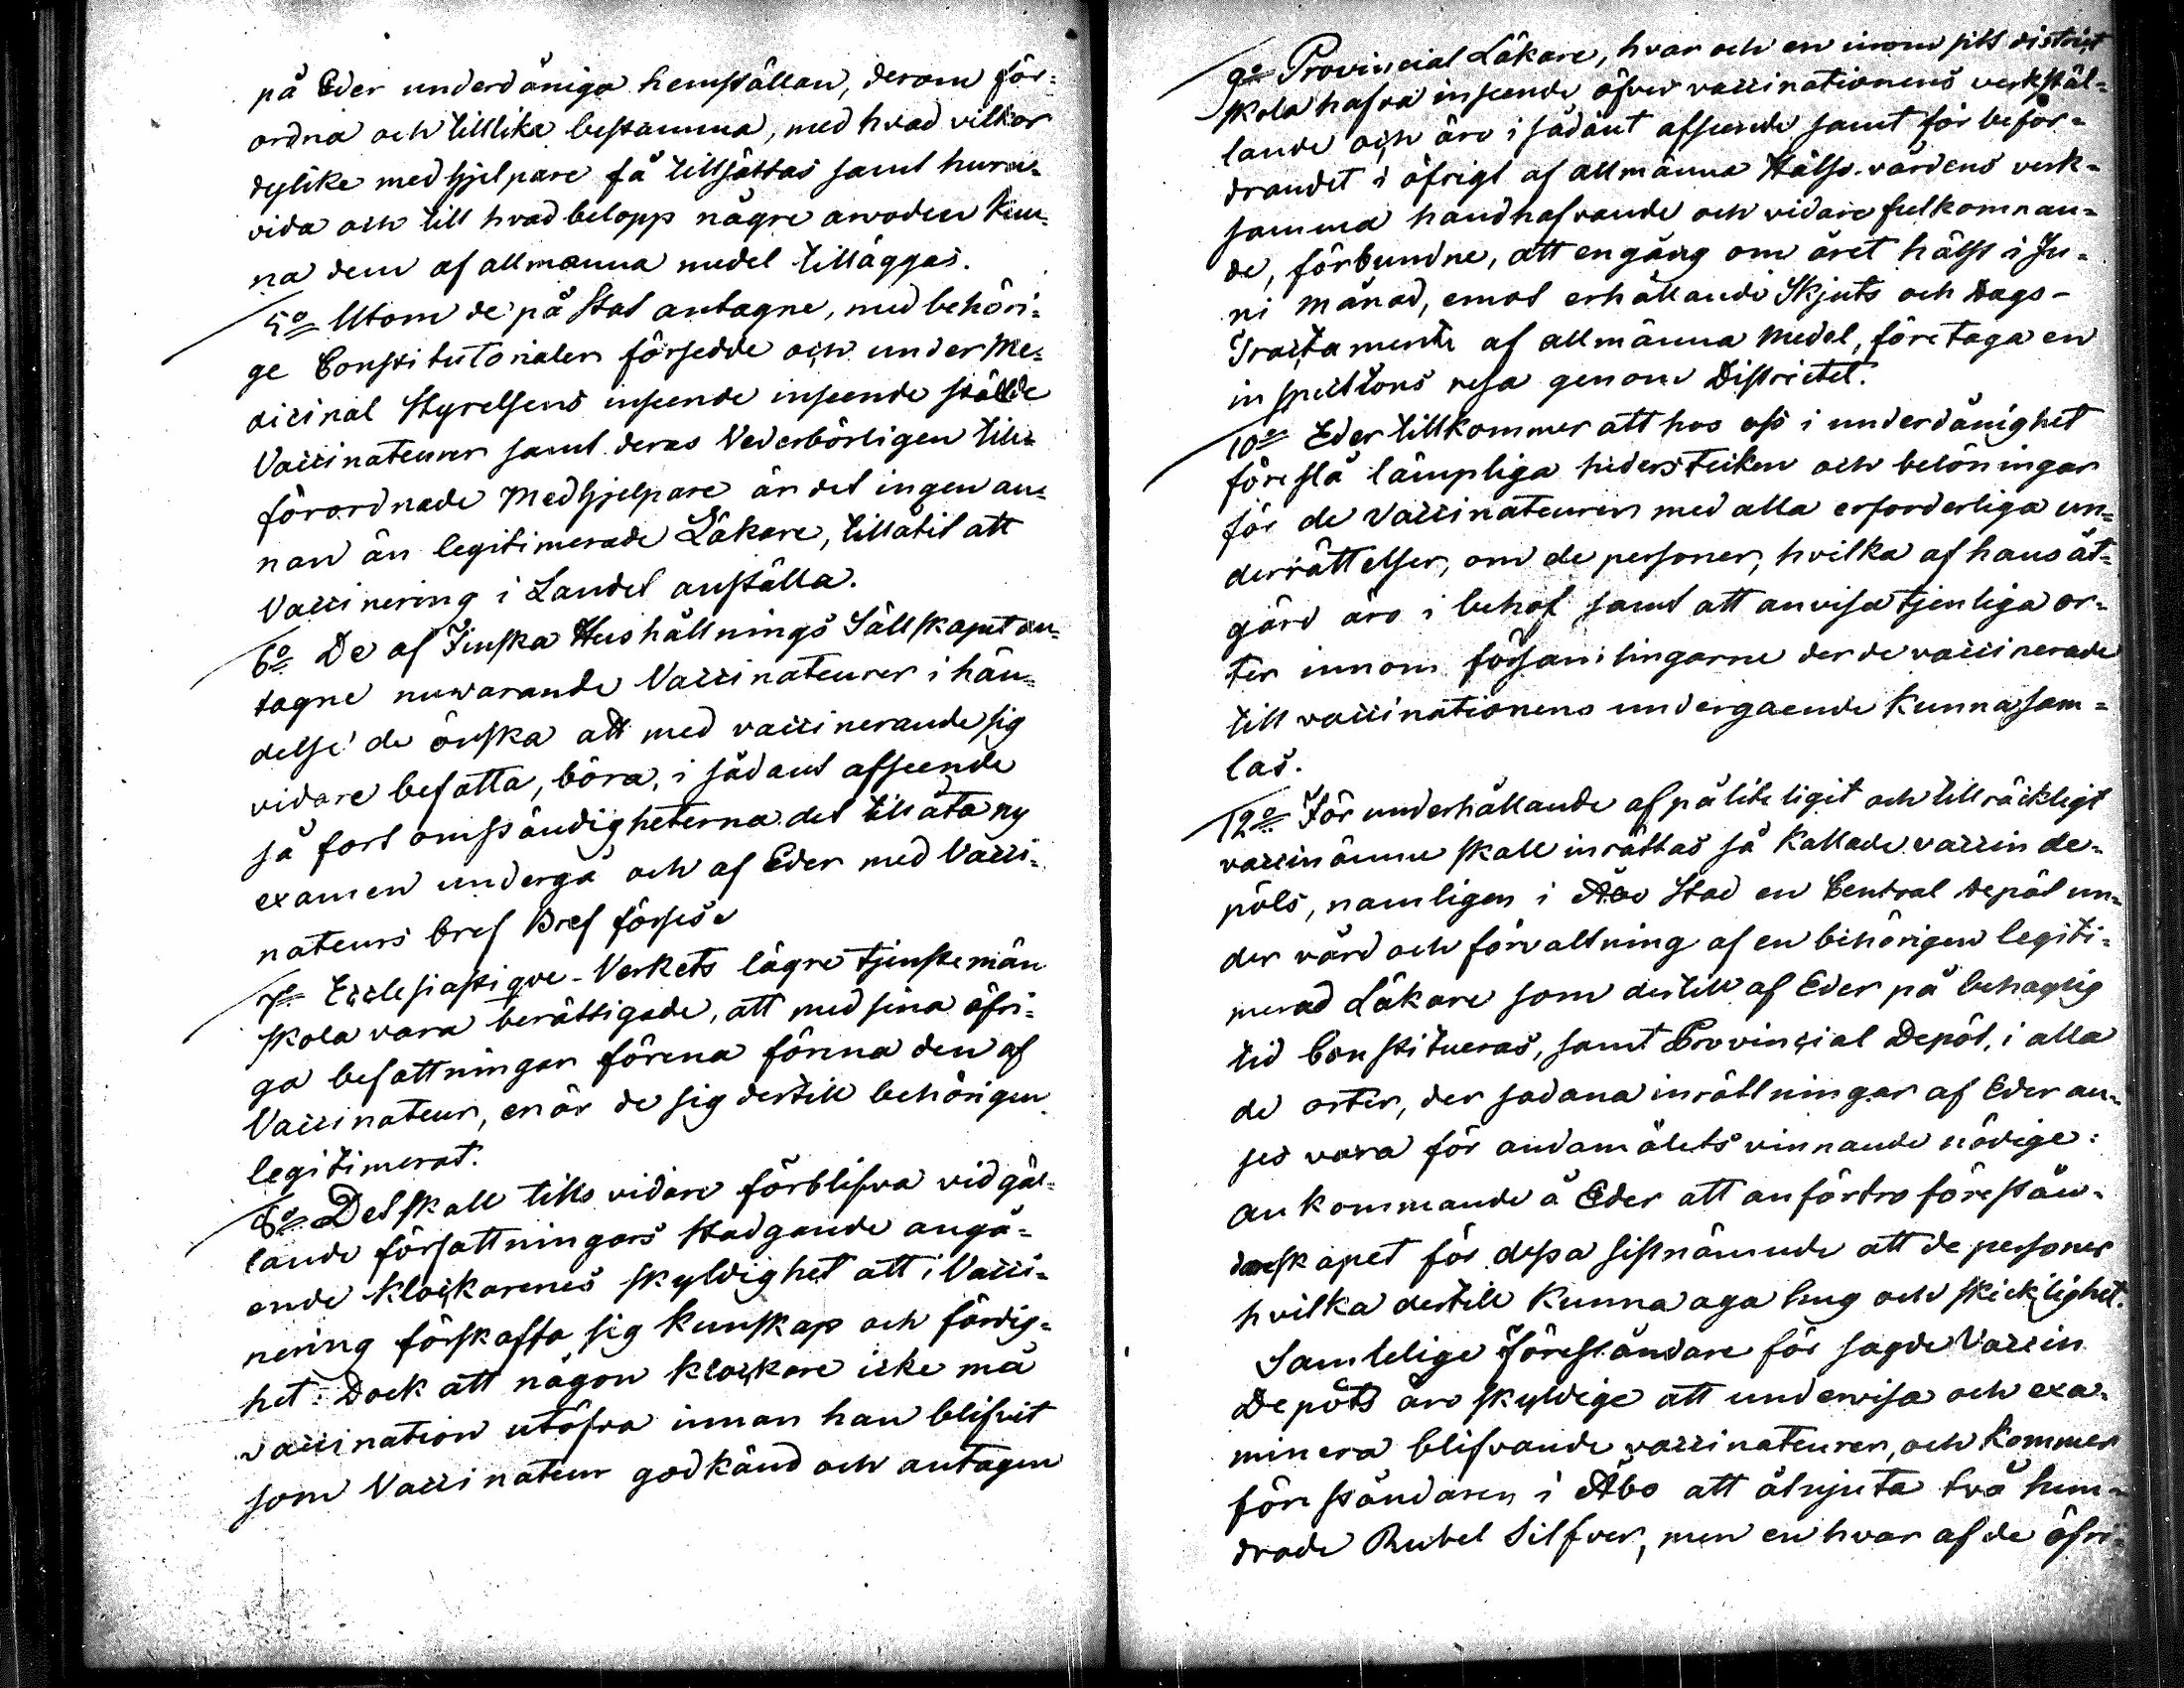 på Eder underdåniga hemställan, derom för=
ordna och tillika bestämma, med hvad vilkor
dylike medhjelpare få tillsättas samt huru=
vida och till hvad belopp någre arvoden kun=
na dem af allmänna medel tilläggas.
5:o Utom de på Stat antagne, med behöri=
ge Constitutorialer försedde och under Me=
dicinal Styrelsens inseende inseende stälde
Vaccinateurer samt deras Vederbörligen till=
förordnade Medhjelpare är det ingen an=
nan än legitimerade Läkare, tillåtit att
Vaccinering i Landet anställa.
6:o De af Finska Hushållnings Sällskapet an=
tagne nuvarande Vaccinateurer i hän=
delse de önska att med vaccinerande sig
vidare befatta, böra, i sådant afseende
så fort omständigheterna det tillåta ny
examen undergå och af Eder med Vacci=
nateurs bref Bref förses.
7:o Ecclesiastique-Verkets lägre tjenstemän
skola vara berättigade, att med sina öfri=
ga befattningar förena förena den af
Vaccinateur, enär de sig dertill behörigen
legitimerat.
8:o Det skall tills vidare förblifva vid gäl=
lande författningars Stadgande angå=
ende klockarenes skyldighet att i Vacci=
nering förskaffa sig kunskap och färdig=
het: Dock att någon klockare icke må
vaccination utöfva innan han blifvit
som Vaccinateur godkänd och antagen
9:o Provincial Läkare, hvar och en inom sitt district
skola hafva inseende öfver vaccinationens verkstäl=
lande och äro i sådant afseende samt för beför=
drandet i öfrigt af allmänna Hälso-vårdens verk=
samma handhafvande och vidare fulkomnan=
de, förbundne, att en gång om året hälst i Ju=
ni Månad, emot erhållande Skjuts och Dags-
Tractamente af allmänna Medel, företaga en
inspections resa genom Districtet.
10:o Eder tillkommer att hos oss i underdånighet
föreslå lämpliga hedersteiken och belöningar
för de Vaccinateurer med alla erforderliga un=
derrättelser, om de personer, hvilka af hans åt=
gärd äro i behof samt att anvisa tjenliga or=
ter innom församlingarne der de vaccinerade
till vaccinationens undergaende kunna sam=
las.
12:o För underhållande af pålitligit och tillräckligt
vaccinämne skall inrättas så kallade vaccin de=
pôts, namligen i Åbo Stad en Central Depôt un=
der vård och förvaltning af en behörigen legiti=
merad Läkare som dertill af Eder på behaglig
tid Constitueras, samt Provincial Depôt, i alla
de orter, der sadana inrättningar af Eder an=
ses vara för andamålets vinnande nödige:
ankommande å Eder att anförtro förestån=
darskapet för dessa sistnämnde att de personer
hvilka dertill kunna aga hug och skicklighet.
Samtelige Föreståndare för sagde Vaccin
Depôts äro skyldige att undervisa och exa=
minera blifvande vaccinateurer, och kommer
föreståndaren i Åbo att åtnjuta två hun=
drade Rubel Silfver, men en hvar af de öfri=